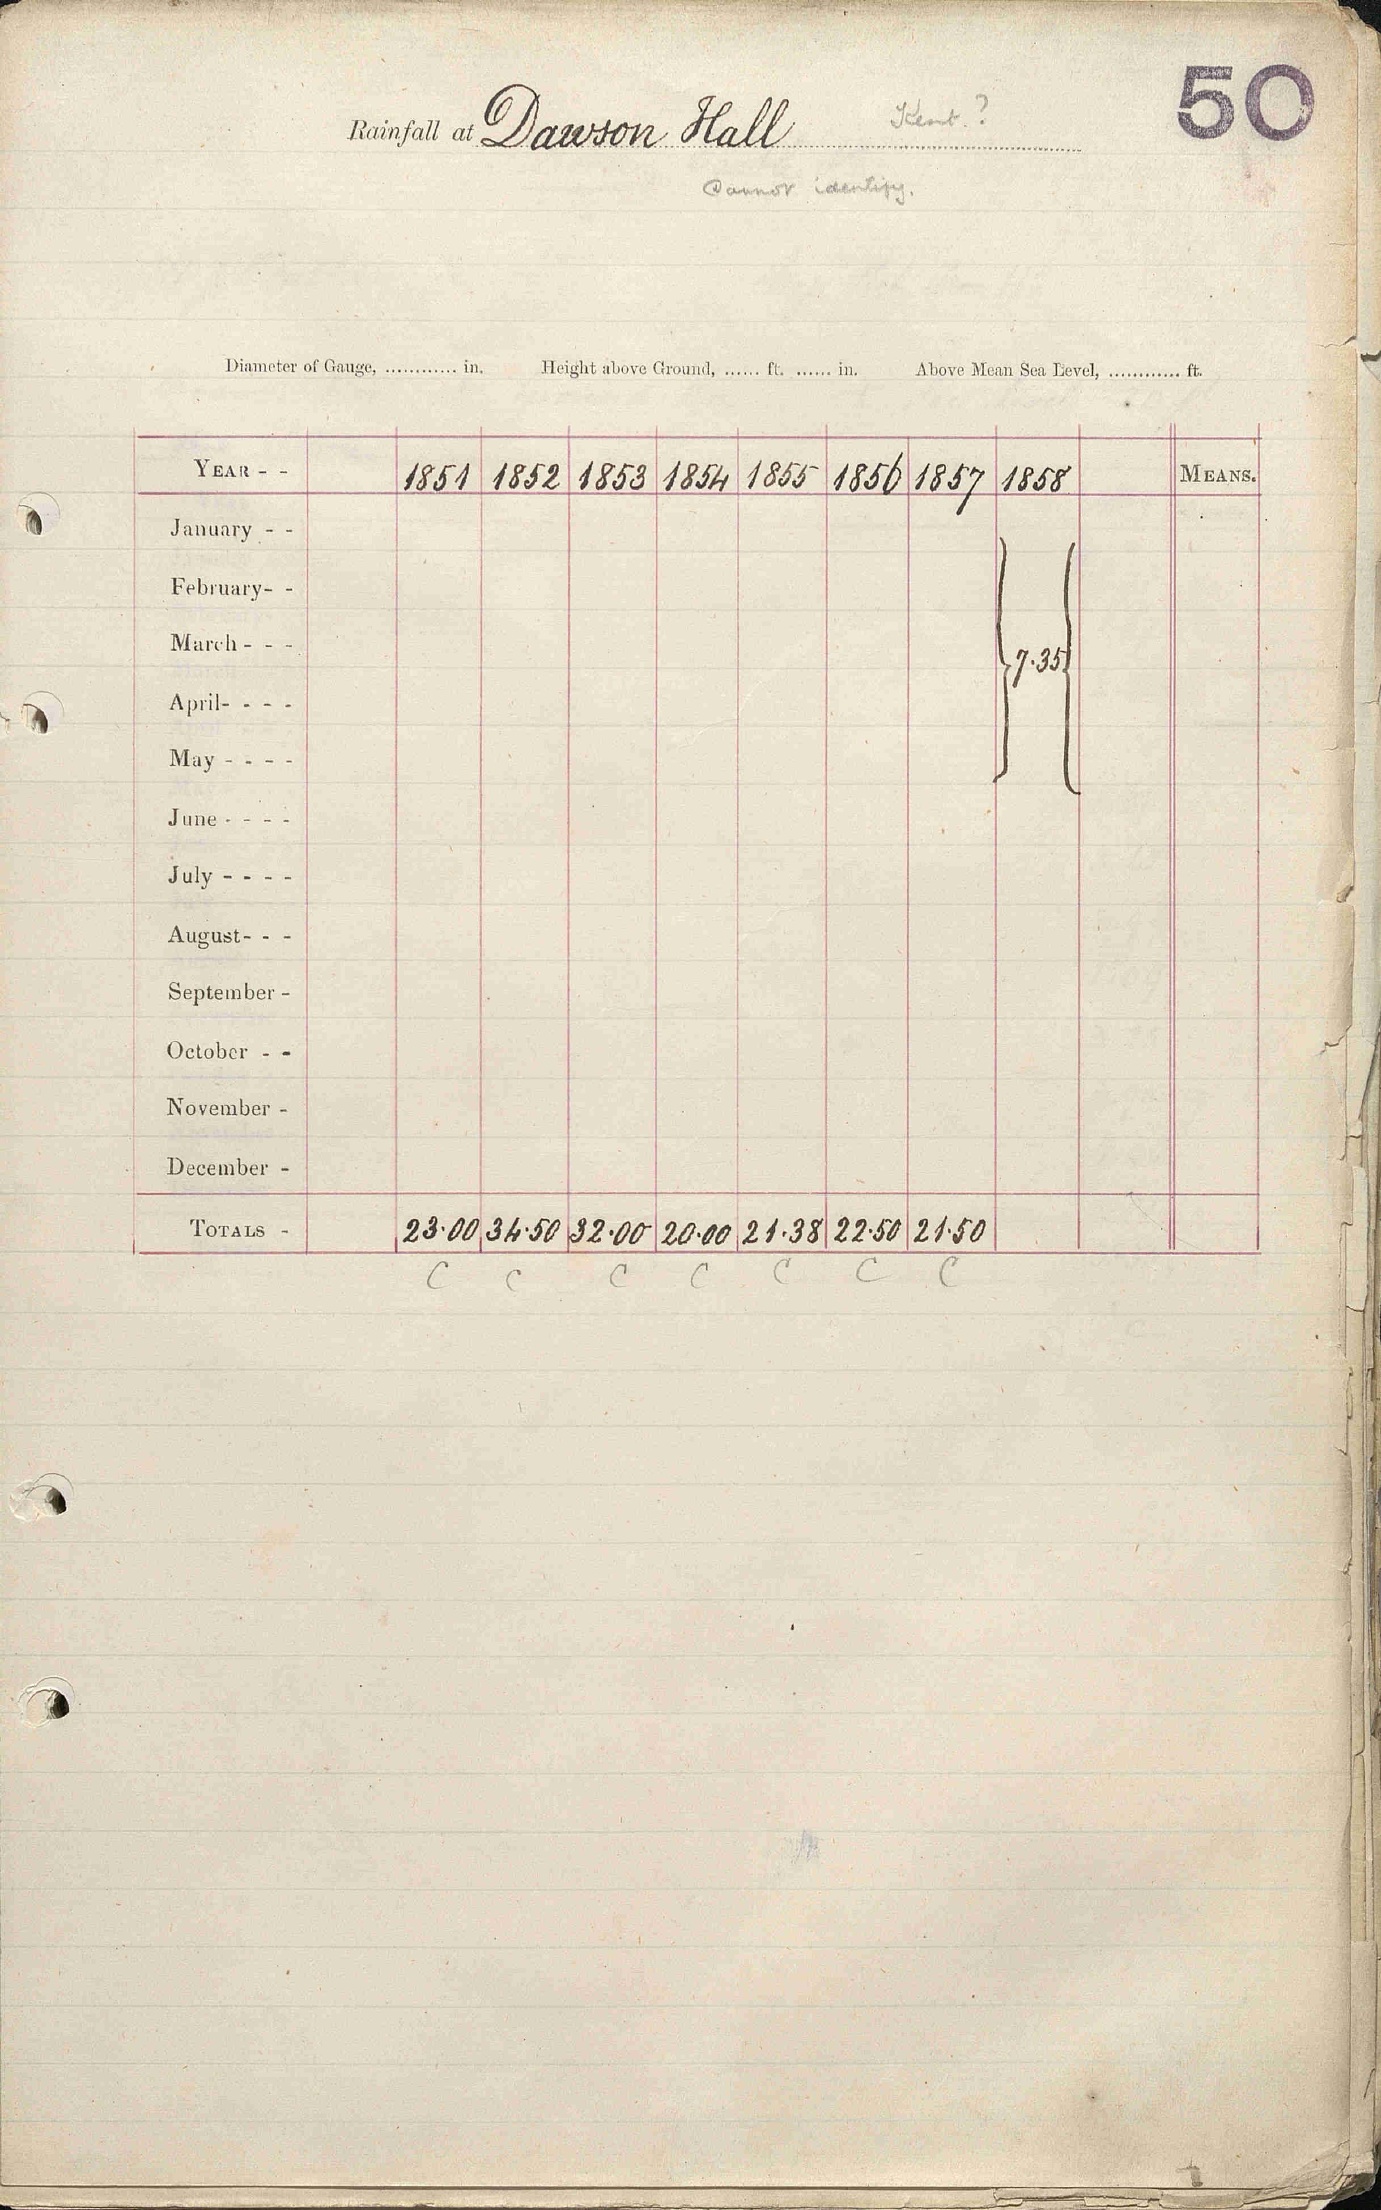 50
Rainfall at Dawson Hall Kent.?
Cannot identify.
Diameter of Gauge, ............ in. Height above Ground, ...... ft. ...... in. Above Mean Sea Level, ............ ft.
YEAR - - 1851 1852 1853 1854 1855 1856 1857 1858 MEANS.
January - -
February- -
March - - - 7.35
April- - - -
May - - - -
June - - - -
July - - - -
August- - -
September -
October - -
November -
December -
TOTALS - 23.00 34.50 32.00 20.00 21.38 22.50 21.50
C C C C C C C